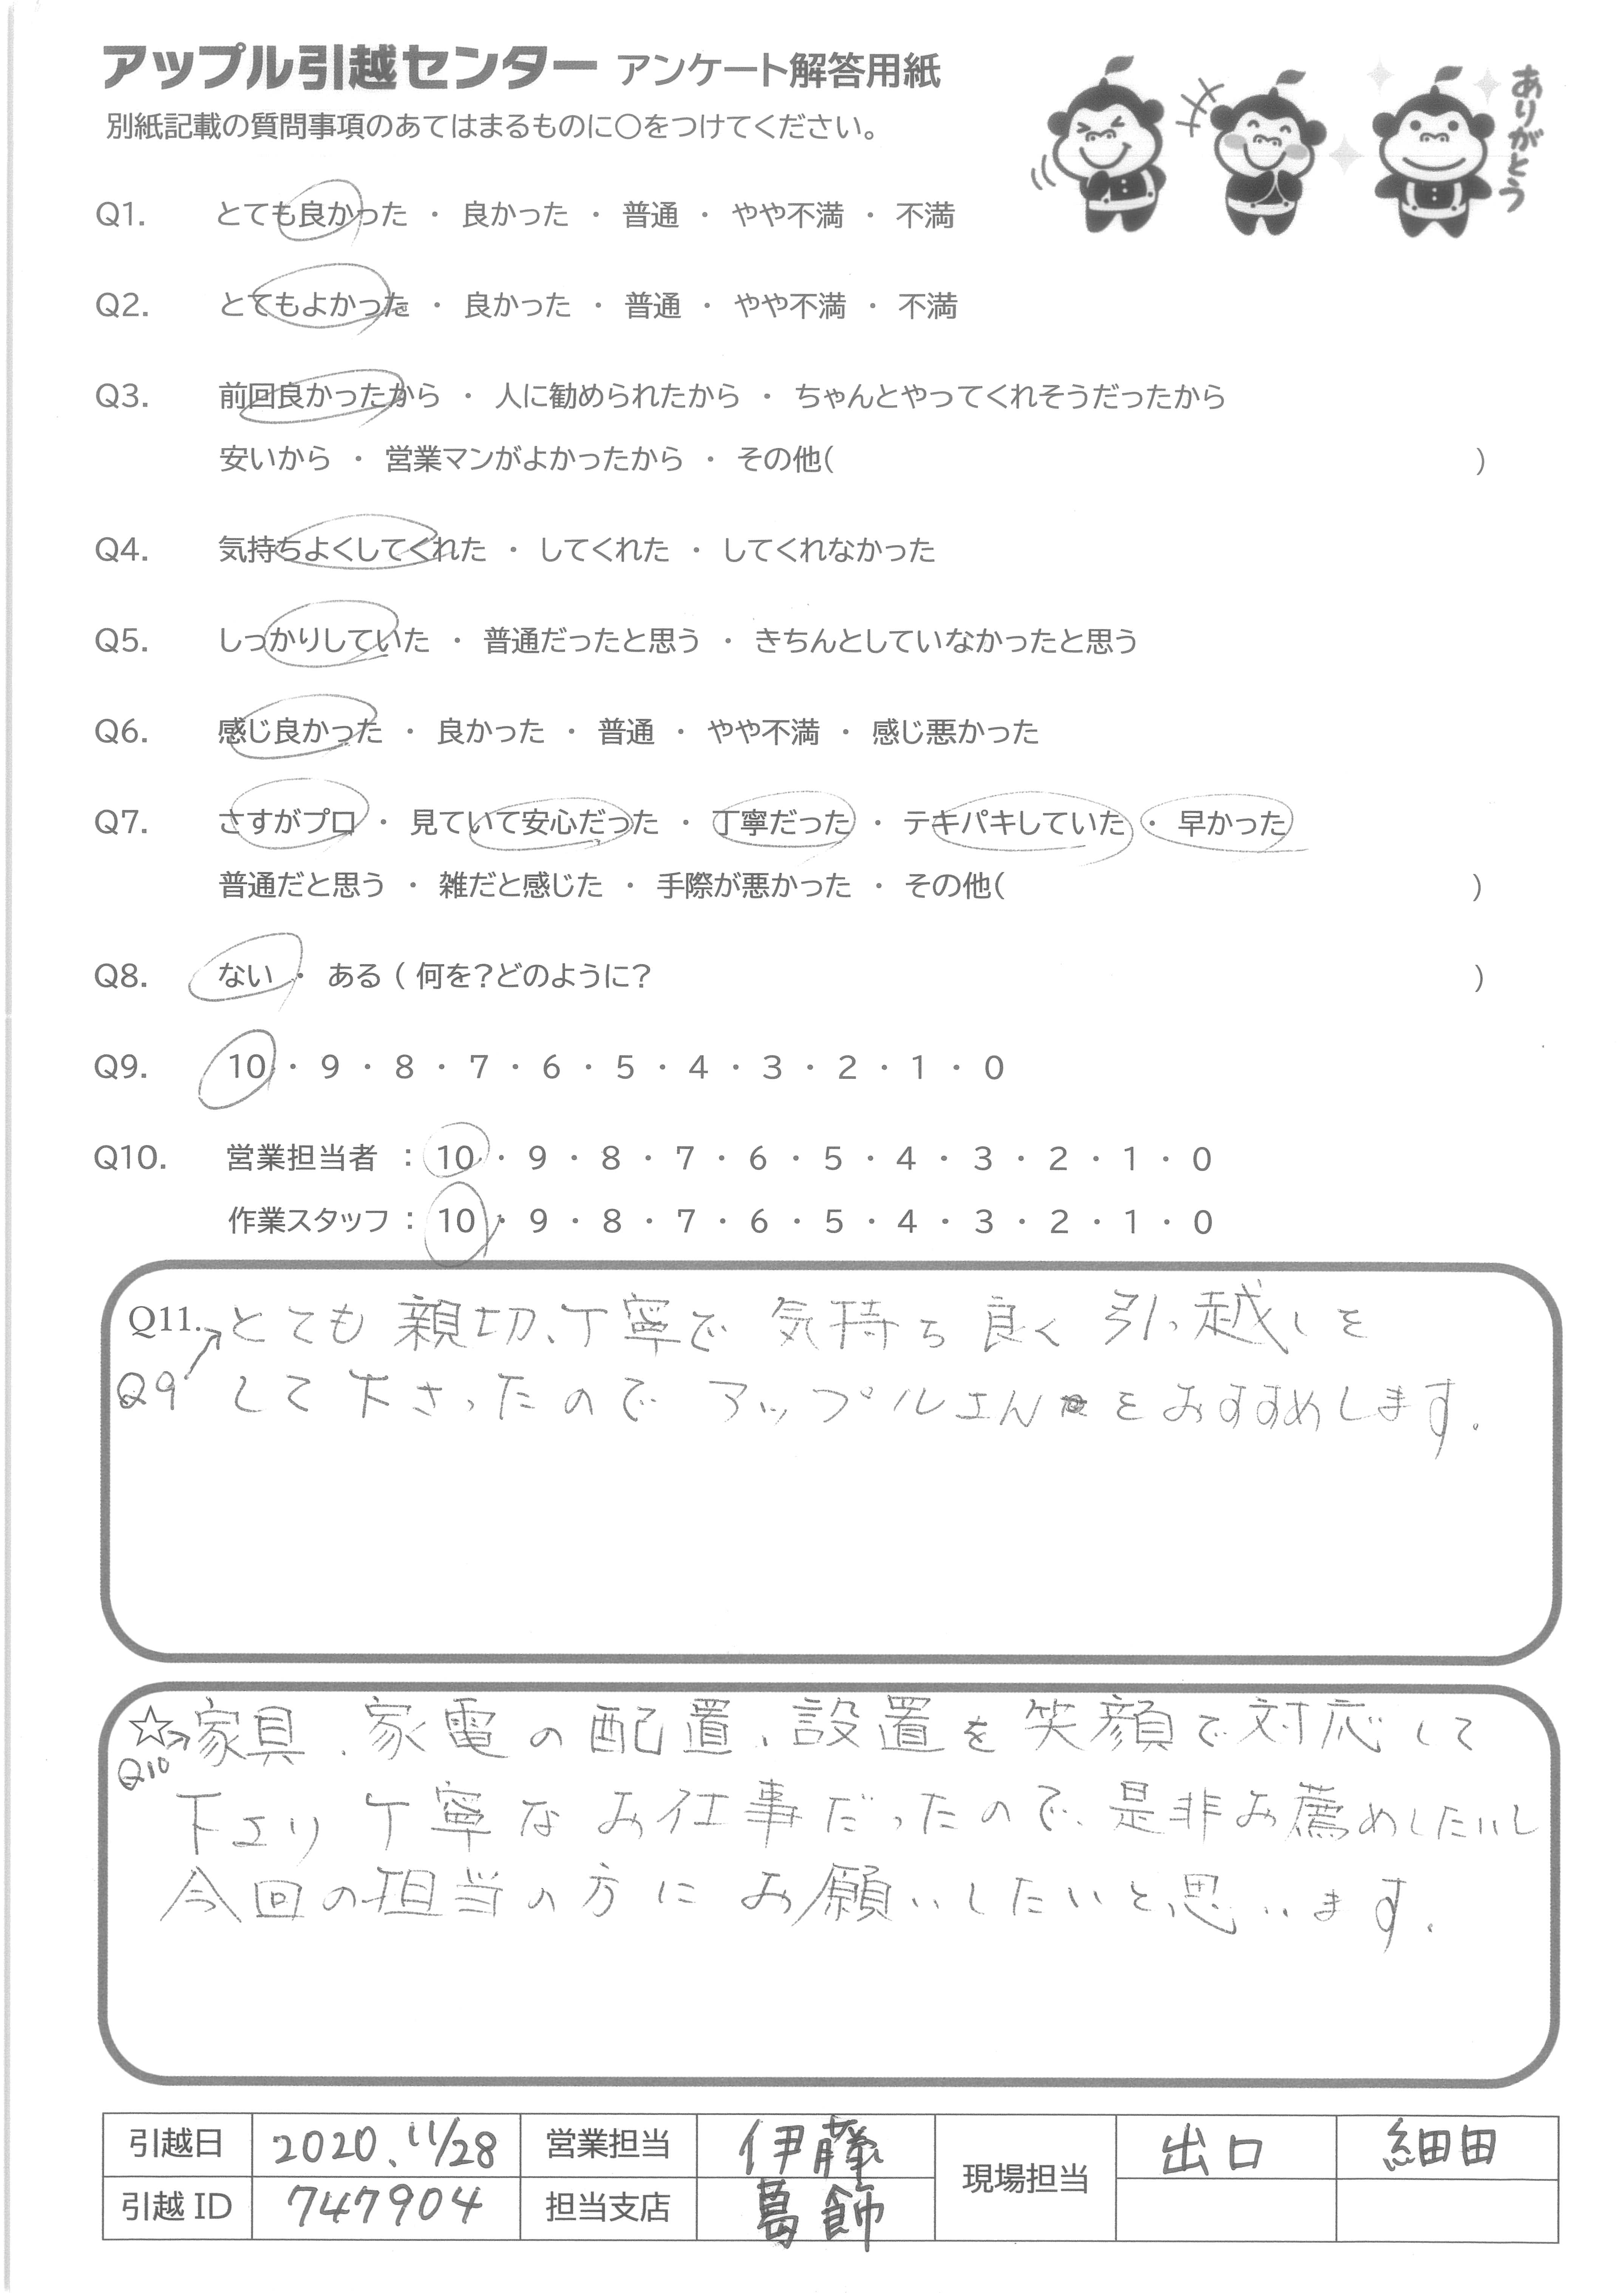 アップル引越センター アンケート解答用紙
別紙記載の質問事項のあてはまるものに〇をつけてください。
ありがとう
Q1. とても良かった ・ 良かった ・ 普通 ・ やや不満 ・ 不満
Q2. とてもよかった ・ 良かった ・ 普通 ・ やや不満 ・ 不満
Q3. 前回良かったから ・ 人に勧められたから ・ ちゃんとやってくれそうだったから
安いから ・ 営業マンがよかったから ・ その他( )
Q4. 気持ちよくしてくれた ・ してくれた ・ してくれなかった
Q5. しっかりしていた ・ 普通だったと思う ・ きちんとしていなかったと思う
Q6. 感じ良かった ・ 良かった ・ 普通 ・ やや不満 ・ 感じ悪かった
Q7. さすがプロ ・ 見ていて安心だった ・ 丁寧だった ・ テキパキしていた ・ 早かった
普通だと思う ・ 雑だと感じた ・ 手際が悪かった ・ その他( )
Q8. ない ・ ある ( 何を?どのように? )
Q9. 10 ・ 9 ・ 8 ・ 7 ・ 6 ・ 5 ・ 4 ・ 3 ・ 2 ・ 1 ・ 0
Q10. 営業担当者 : 10 ・ 9 ・ 8 ・ 7 ・ 6 ・ 5 ・ 4 ・ 3 ・ 2 ・ 1 ・ 0
作業スタッフ : 10 ・ 9 ・ 8 ・ 7 ・ 6 ・ 5 ・ 4 ・ 3 ・ 2 ・ 1 ・ 0
Q11. とても親切、丁寧で気持ち良く引っ越しを
Q9 して下さったのでアップルさんをおすすめします.
☆→家具、家電の配置、設置を笑顔で対応して
Q10
下さり丁寧なお仕事だったので、是非お薦めしたいし
今回の担当の方にお願いしたいと思います.
引越日 2020、11/28 営業担当 伊藤 現場担当 出口 細田
引越 ID 747904 担当支店 葛飾